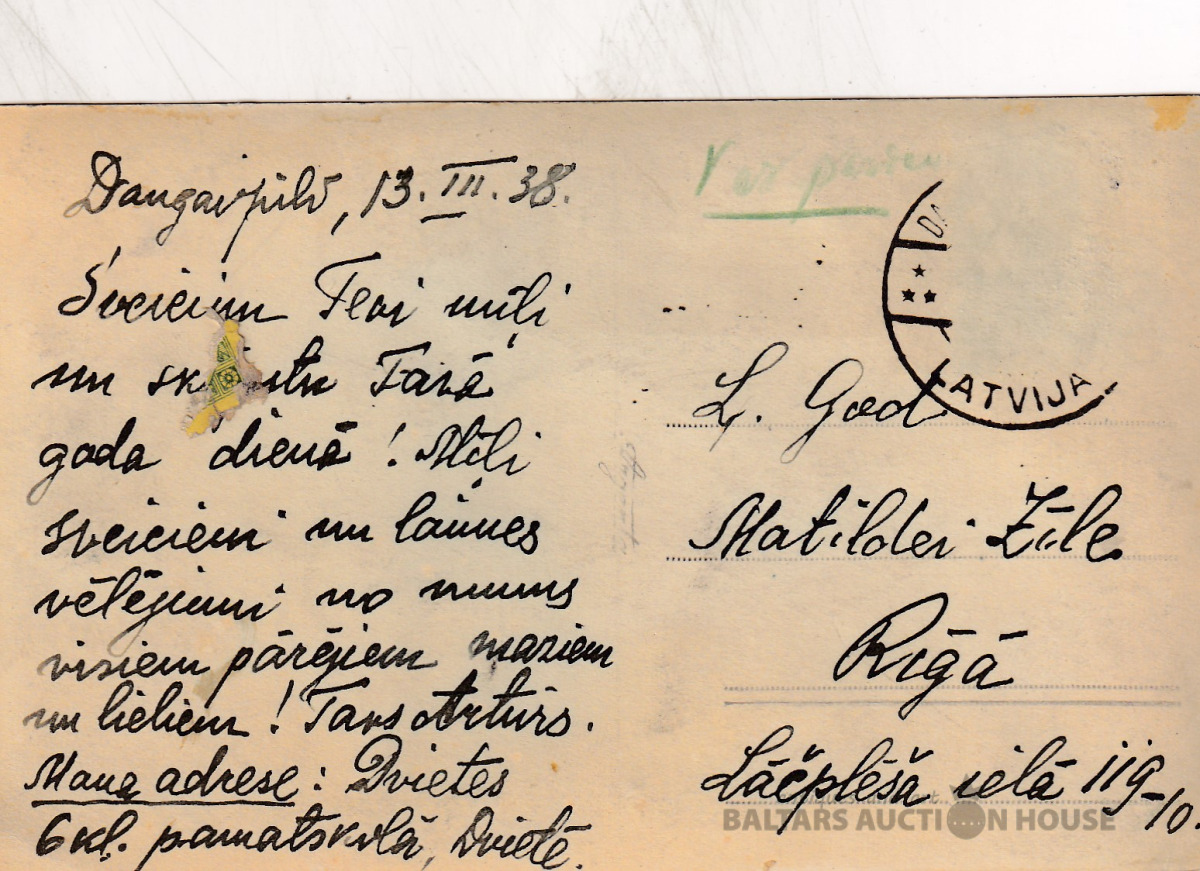 Daugavpilī, 13.III.38.
Sveicim Tevi mīļi
un sk tu Tavā
goda dienā! Mīļi
sveicieni un laimes
vēlējumi no mums
visiem pārējiem maziem
un lieliem! Tavs Artūrs.
Mana adrese: Dvietes
6 kl. pamatskolā, Dvietē.
DA
LATVIJA
Ļ. God
Matildei Zīle
Rīgā
Lāčplēša ielā 119-10.
BALTARS AUCTION HOUSE